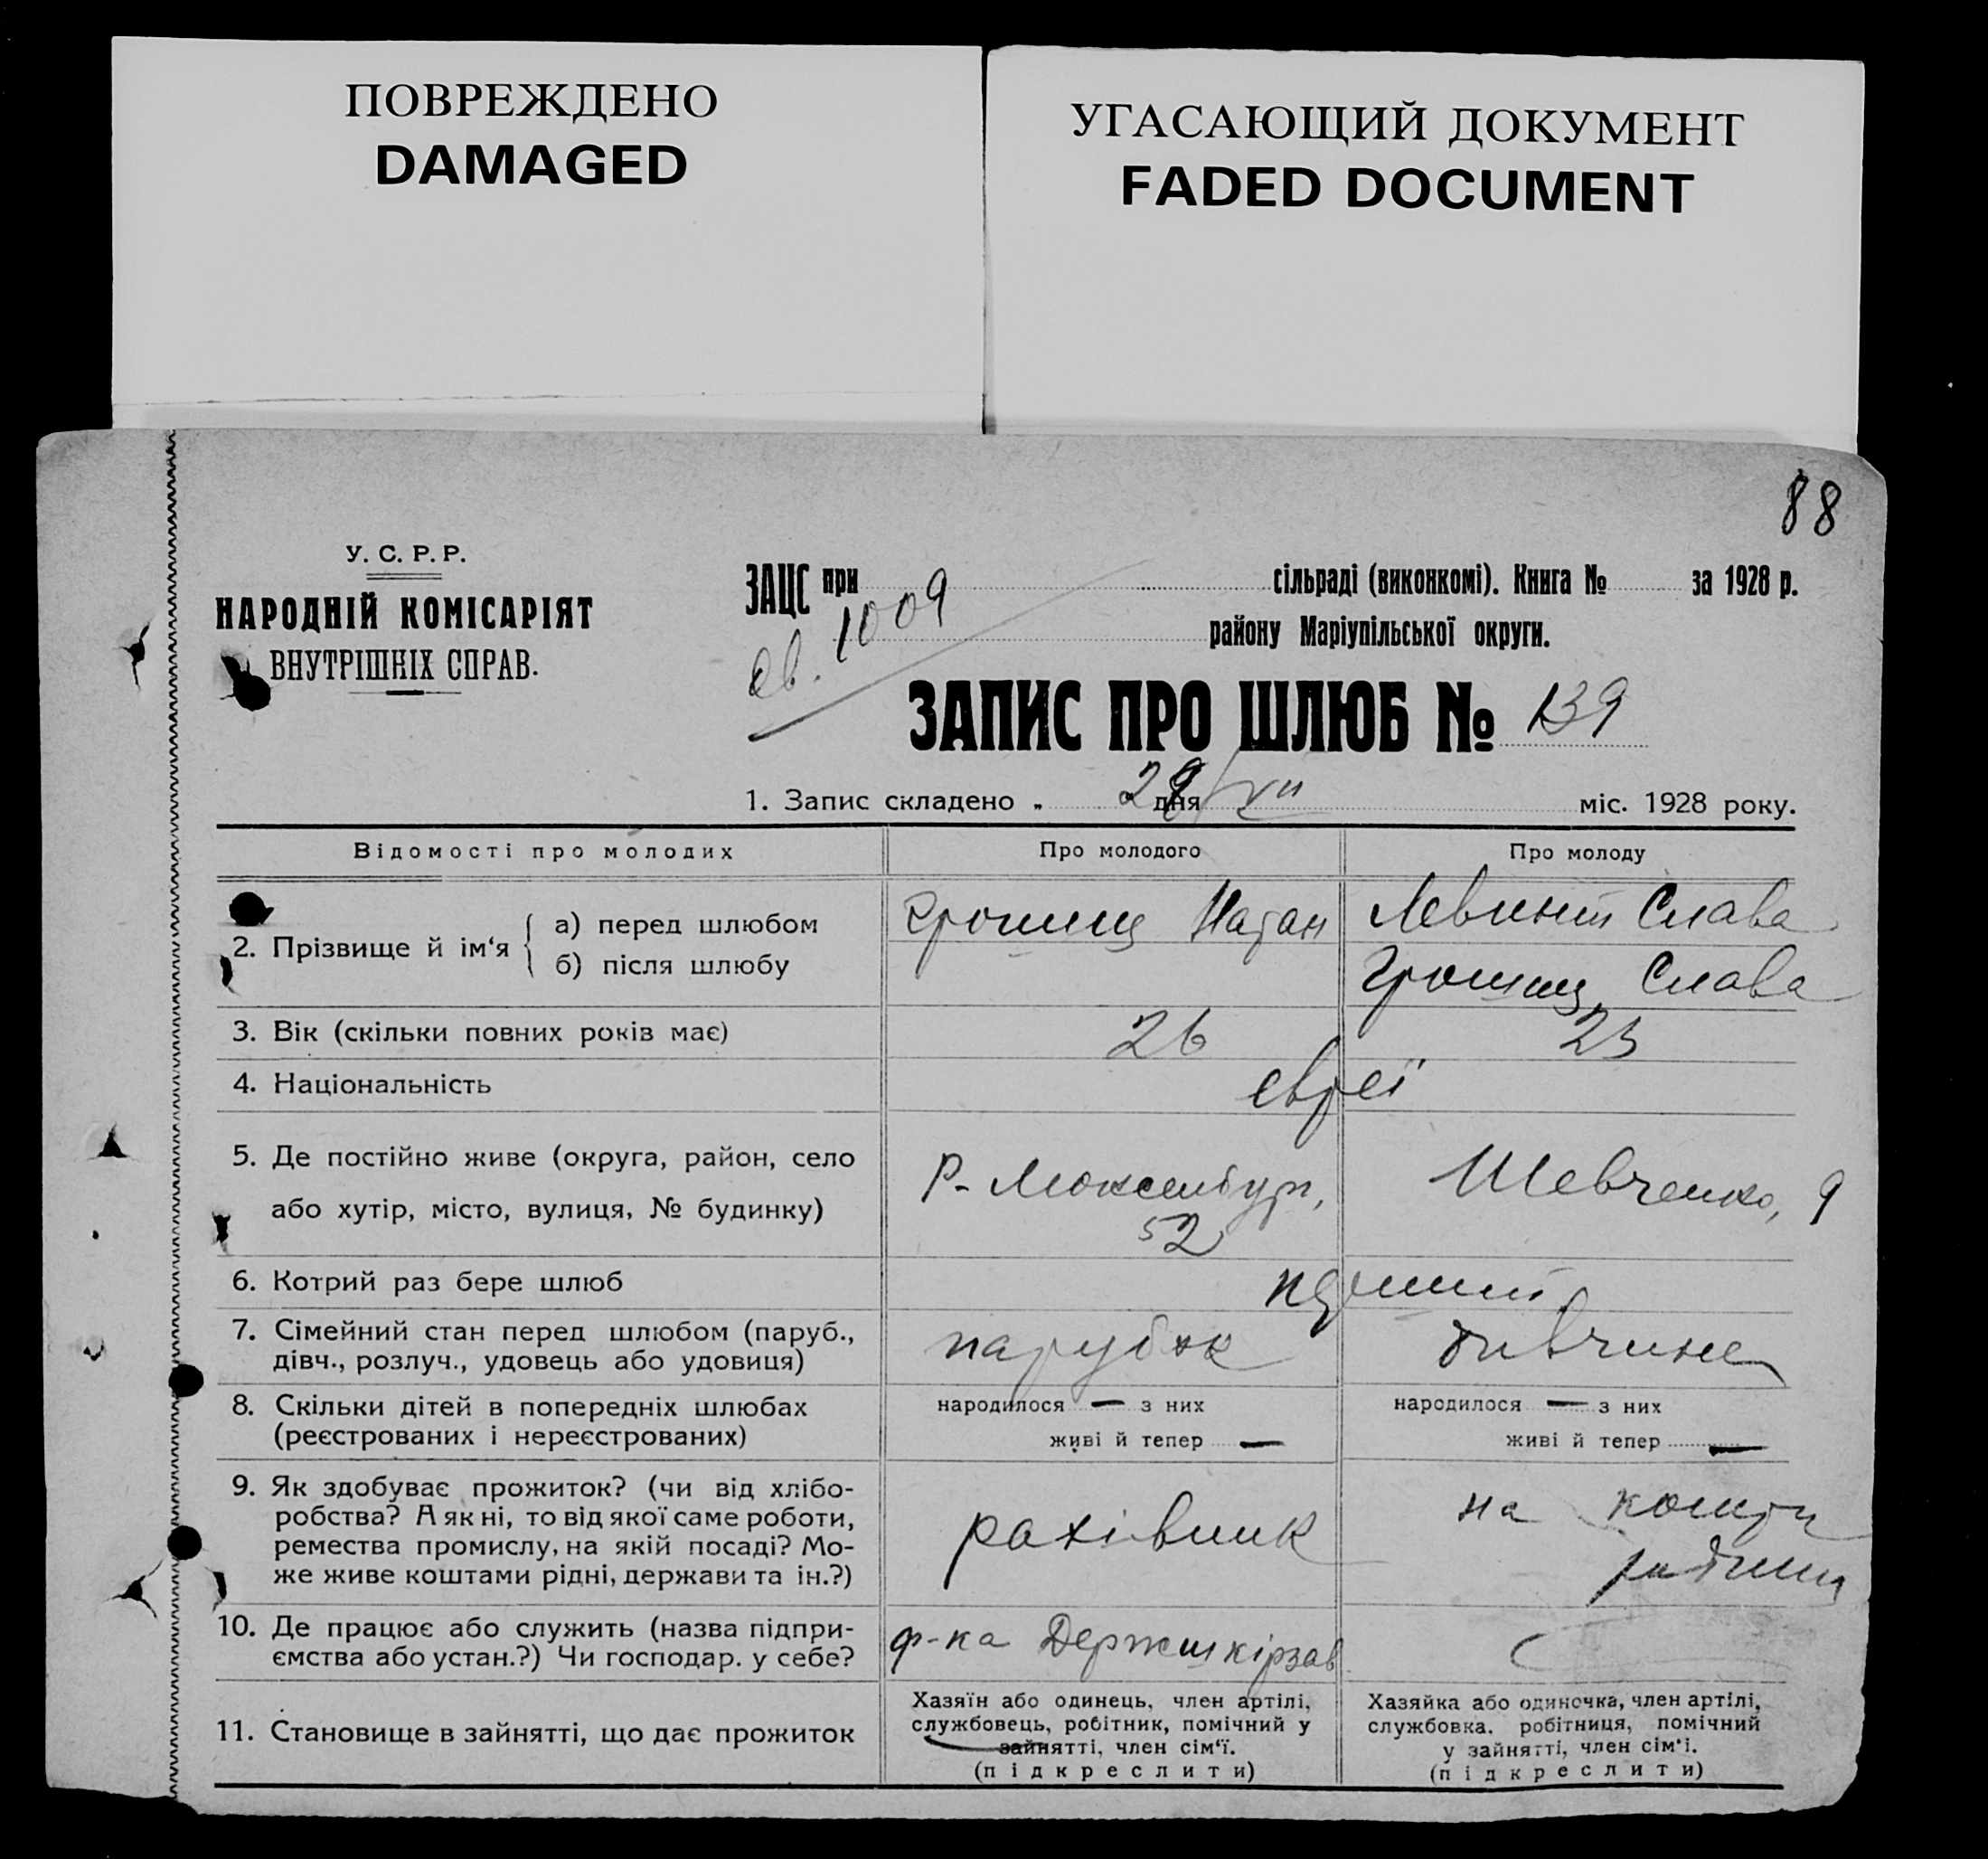 ПОВРЕЖДЕНО
DAMAGED
УГАСАЮЩИЙ ДОКУМЕНТ
FADED DOCUMENT
88
У. С. Р. Р.
НАРОДНІЙ КОМІСАРІЯТ
ВНУТРІШНІХ СПРАВ.
ЗАЦС при сільраді (виконкомі). Книга № за 1928 р.
1009
району Маріупільської округи.
ЗАПИС ПРО ШЛЮБ № 139
1. Запис складено „ дня VII міс. 1928 року.
Відомості про молодих Про молодого Про молоду
2. Прізвище й ім‘я
а) перед шлюбом Натан Левинт Слава
б) після шлюбу Слава
3. Вік (скільки повних років має) 26 23
4. Національність євреї
5. Де постійно живе (округа, район, село
або хутір, місто, вулиця, № будинку)
Р. Люксембург,
52
Шевченко, 9
6. Котрий раз бере шлюб перший
7. Сімейний стан перед шлюбом (паруб.,
дівч., розлуч., удовець або удовиця)
парубок
дивчина
8. Скільки дітей в попередніх шлюбах
(реєстрованих і нереєстрованих)
народилося — з них
живі й тепер —
народилося — з них
живі й тепер —
9. Як здобуває прожиток? (чи від хлібо-
робства? А як ні, то від якої саме роботи,
ремества промислу, на якій посаді? Мо-
же живе коштами рідні, держави та ін.?)
рахівник
на кошти
родини
10. Де працює або служить (назва підпри-
ємства або устан.?) Чи господар. у себе?
ф-ка
11. Становище в зайнятті, що дає прожиток
Хазяїн або одинець, член артілі,
службовець, робітник, помічний у
зайнятті, член сім‘ї.
(підкреслити)
Хазяйка або одиночка, член артілі,
службовка. робітниця, помічний
у зайнятті, член сім‘ї.
(підкреслити)